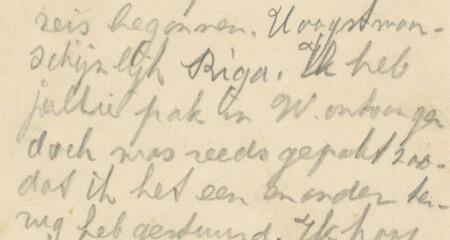 reis begonnen. Hoogstwaar-
schijnlijk Riga. Ik heb
jullie pak in W. ontvangen
doch was reeds gepakt zoo-
dat ik het een en ander te-
rug heb gestuurd. Ik hoop